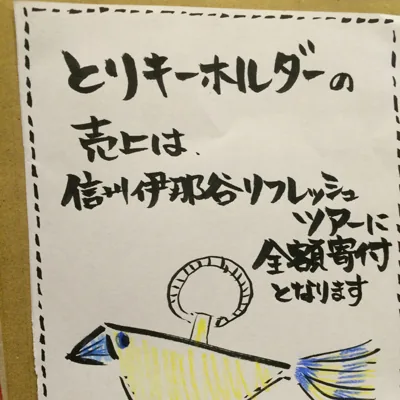 とりキーホルダーの
売上は、
信州伊那谷リフレッシュ
ツアーに
全額寄付
となります